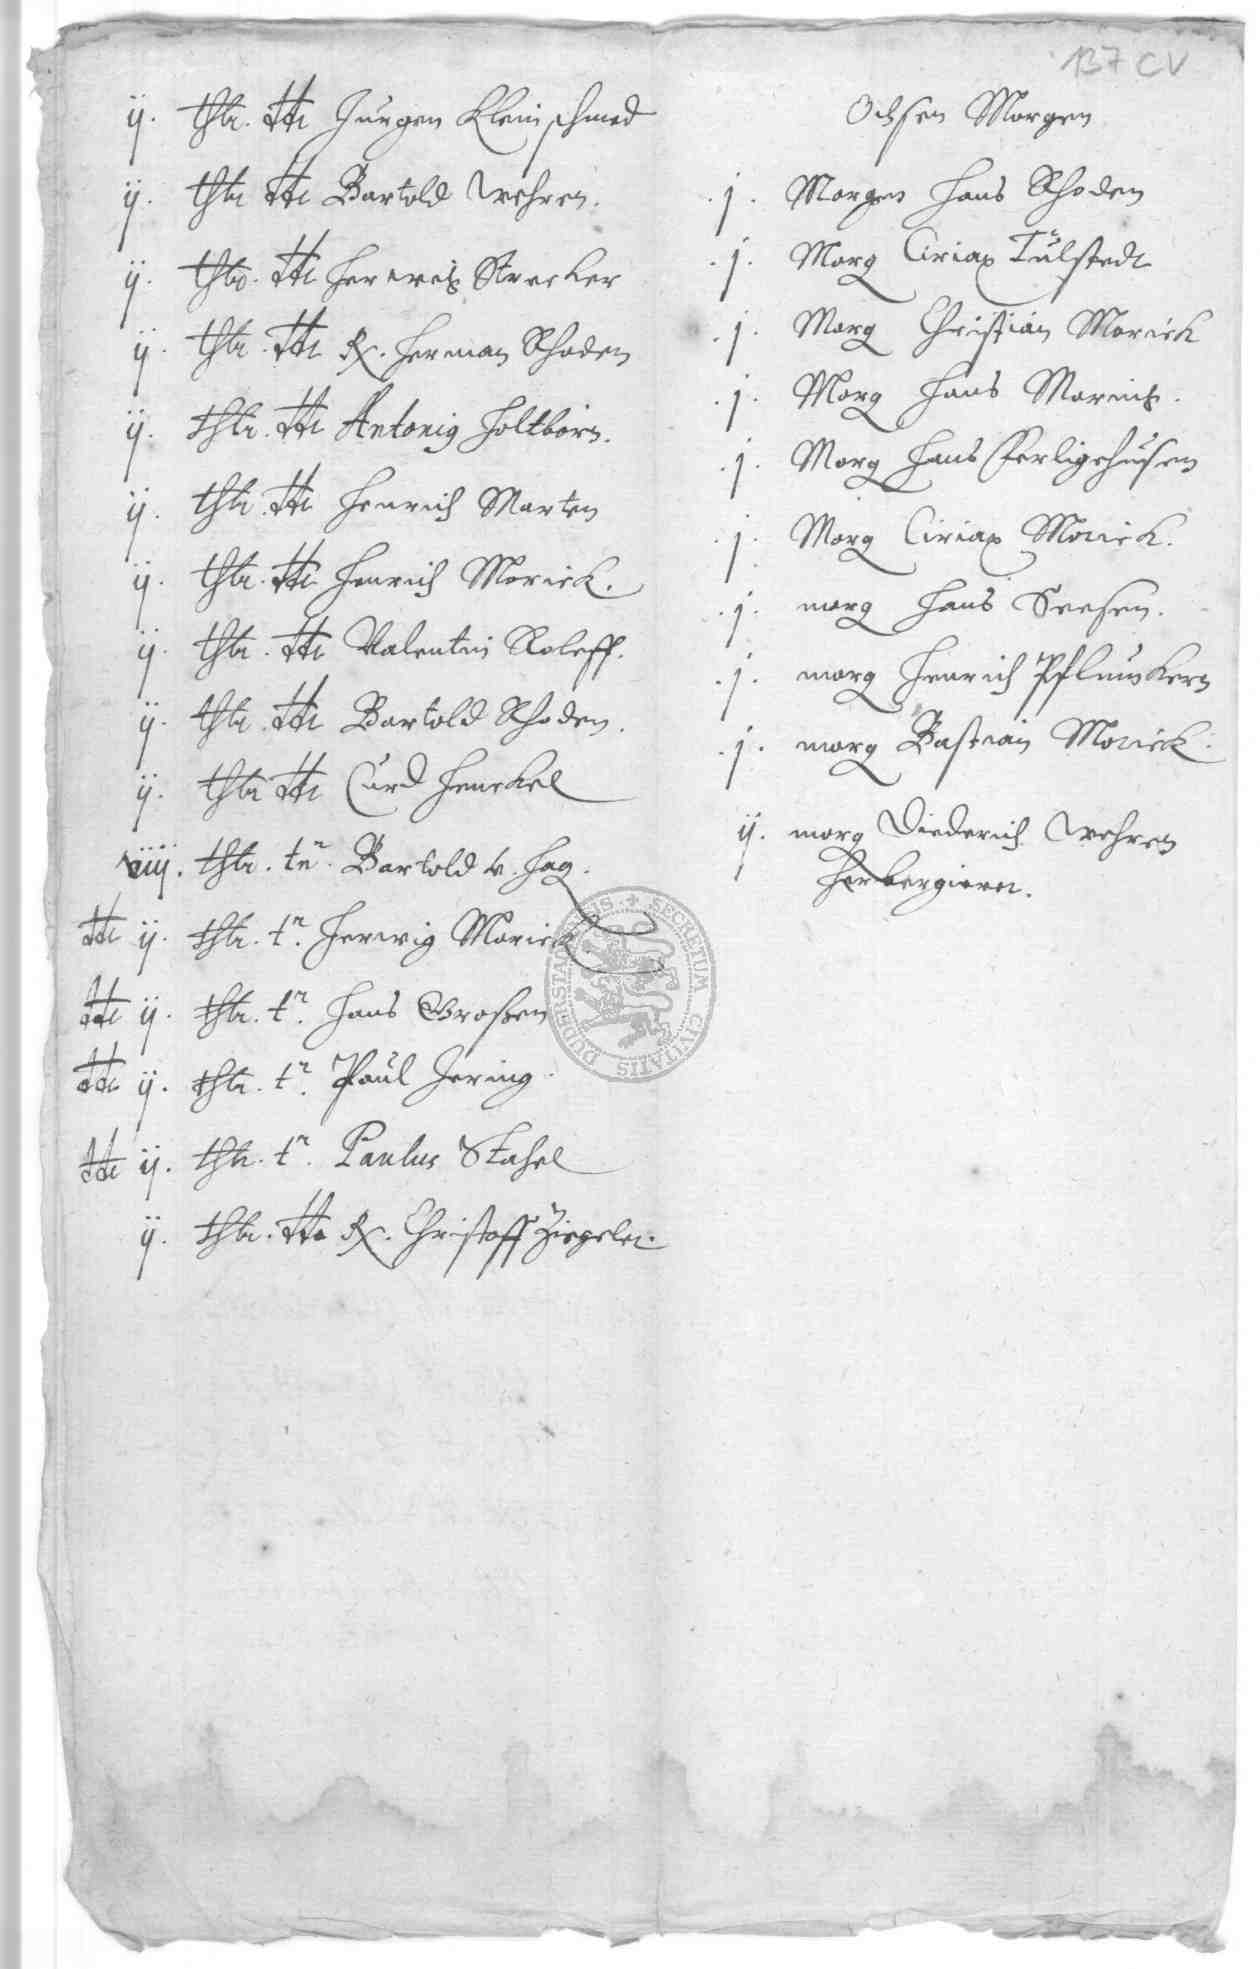 137 CV
ij. thlr. dt Jurgen Kleinschmed
ij. thlr dt Bartold Wehren.
ij. thlr. dt Herweig Strecker
ij. thlr. dt R. Herman Rhoden
ij. thlr. dt Antonig Holtborn.
ij. thlr. dt Henrich Marten
ij. thlr. dt Henrich Morick.
ij. thlr. dt Valentin Roleff.
ij. thlr. dt Bartold Rhoden.
ij. thlr dt Curd Henckel
thlr. tn. Bartold v. Hag.
dt ij. thlr. tn. Herwig Morick
dt ij. thlr. tn. Hans Großen
dt ij. thlr. tn. Paul Jering.
dt ij. thlr. tn. Paulus Stahel
ij. thlr. dt R. Christoff Ziegeler.
Ochsen Morgen
.j. Morgen Hans Rhoden
.j. Morg Ciriax Tülstedt
.j. Morg Christian Morick
.j. Morg Hans
.j. Morg Hans Ferligehusen
.j. Morg Ciriax Morick.
.j. morg Hans Seesen.
.j. morg Henrich
.j. morg Bastian Morick.
ij. morg Diederich Wehren
SECRETUM CIVITATIS DUDERSTADENSIS